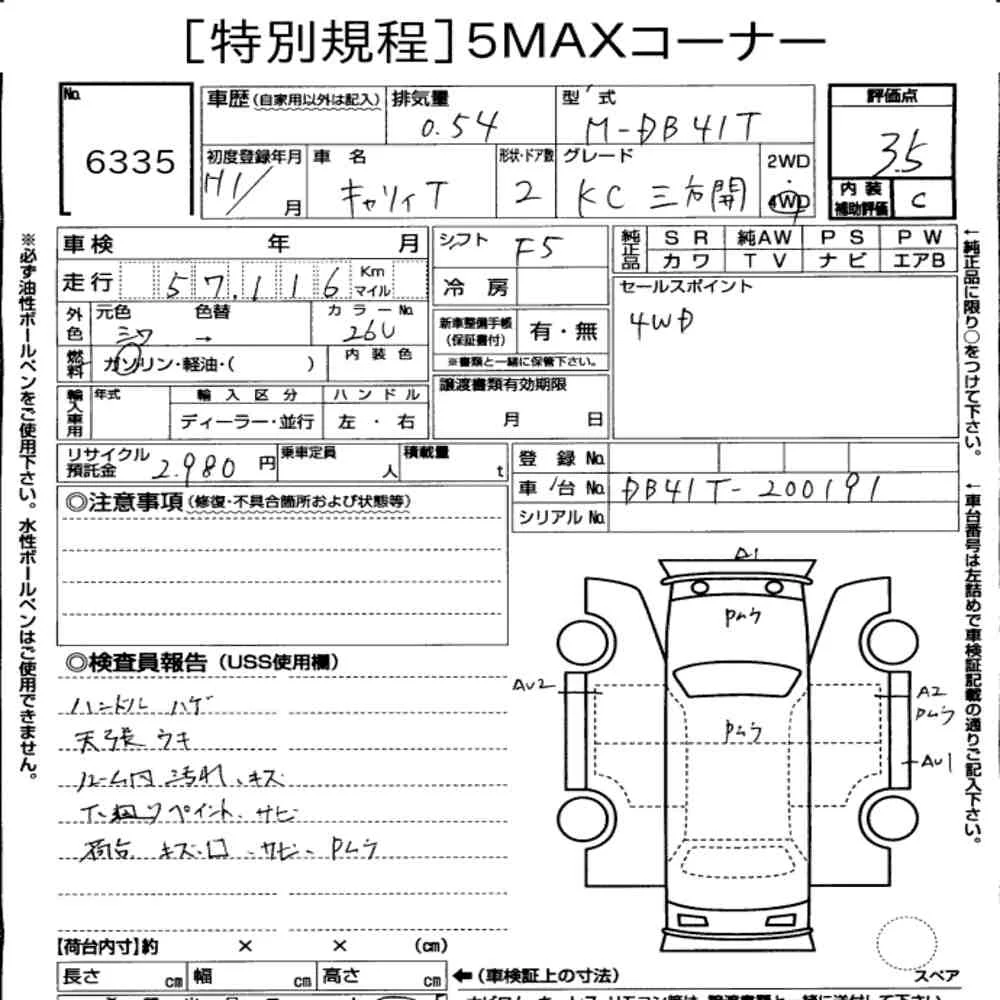 [特別規程]5MAXコーナー
No. 6335
車歴(自家用以外は記入)
排気量 0.54
型式 M-DB41T
評価点 3.5
内装補助評価 C
初度登録年月 H1/ 月
車名 キャリィT
形状・ドア数 2
グレード KC 三方開
2WD・4WD
車検 年 月
シフト F5
純正品 SR 純AW PS PW
カワ TV ナビ エアB
走行 57,116 Km マイル
冷房
セールスポイント
4WD
外色 元色 シロ 色替 →
カラーNo. 26U
新車整備手帳(保証書付) 有・無
※書類と一緒に保管下さい。
燃料 ガソリン・軽油・( )
内装色
譲渡書類有効期限
月 日
輸入車用 年式 輸入区分 ハンドル
ディーラー・並行 左・右
リサイクル預託金 2.980 円
乗車定員 人
積載量 t
登録No.
車台No. DB41T-200191
シリアルNo.
◎注意事項(修復・不具合箇所および状態等)
◎検査員報告(USS使用欄)
ハンドル ハゲ
天張 ウキ
ルーム内 汚れ、キズ
下廻りペイント、サビ
荷台 キズ・凹、サビ、Pムラ
A1
Pムラ
AU2
A2
Pムラ
Pムラ
AU1
スペア
【荷台内寸】約 × × (cm)
長さ cm 幅 cm 高さ cm
←(車検証上の寸法)
※必ず油性ボールペンをご使用下さい。水性ボールペンはご使用できません。
←純正品に限り○をつけて下さい。
←車台番号は左詰めで車検証記載の通りご記入下さい。